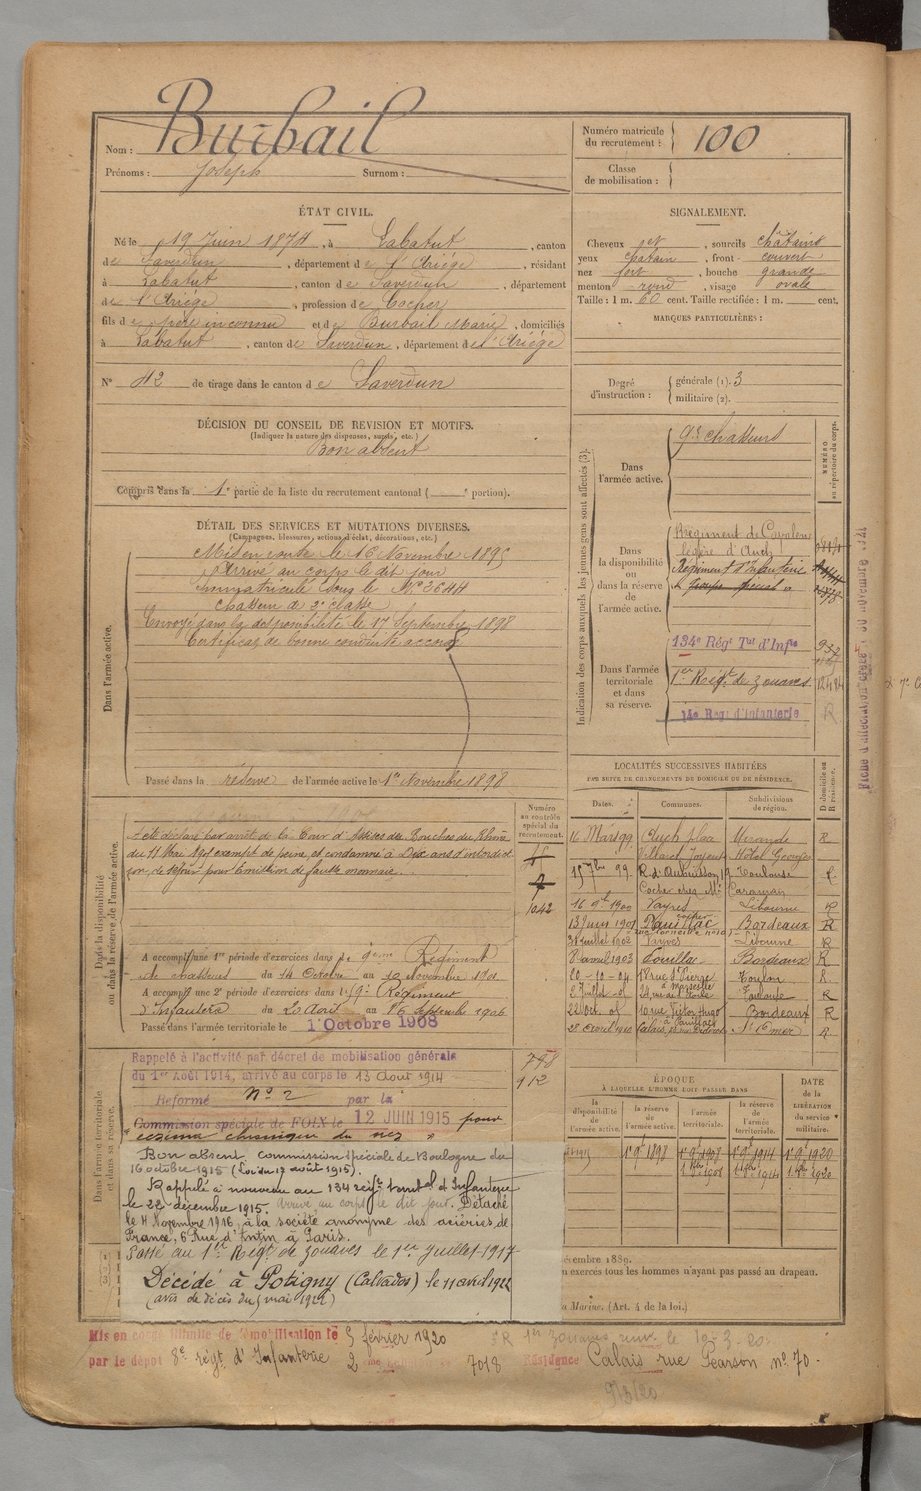 Nom : Burbail
Prénoms : Joseph Surnom :
Numéro matricule du recrutement : 100
Classe de mobilisation :
ÉTAT CIVIL.
Né le 19 Juin 1874, à Labatut, canton
de Saverdun, département de l'Ariége, résidant
à Labatut, canton de Saverdun, département
de l'Ariége, profession de Cocher
fils de père inconnu et de Burbail Marie, domiciliés
à Labatut, canton de Saverdun, département de l'Ariége
N° 42 de tirage dans le canton de Saverdun
SIGNALEMENT.
Cheveux et, sourcils châtains
yeux chatain, front couvert
nez fort, bouche grande
menton rond, visage ovale
Taille : 1 m. 60 cent. Taille rectifiée : 1 m. cent.
MARQUES PARTICULIÈRES :
Degré d'instruction : générale (1). 3
militaire (2).
DÉCISION DU CONSEIL DE REVISION ET MOTIFS.
(Indiquer la nature des dispenses, sursis, etc.)
Bon absent
Compris dans la 1e partie de la liste du recrutement cantonal ( e portion).
DÉTAIL DES SERVICES ET MUTATIONS DIVERSES.
(Campagnes, blessures, actions d'éclat, décorations, etc.)
Dans l'armée active.
Mis en route le 16 Novembre 1895
Arrivé au corps le dit jour
Immatriculé sous le N° 3644
chasseur de 2e classe
Envoyé dans la disponibilité le 17 Septembre 1898
Certificat de bonne conduite accordé
Passé dans la réserve de l'armée active le 1er Novembre 1898
Indication des corps auxquels les jeunes gens sont affectés (3).
NUMÉRO au répertoire du corps.
Dans l'armée active.
9e chasseurs
Dans la disponibilité ou dans la réserve de l'armée active.
Régiment de Cavalerie
légère d'Auch
Régiment d'Infanterie
Dans l'armée territoriale et dans sa réserve.
134e Régt Tal d'Infie
1er Régt de zouaves 12484
14e Régt d'Infanterie R
LOCALITÉS SUCCESSIVES HABITÉES
PAR SUITE DE CHANGEMENTS DE DOMICILE OU DE RÉSIDENCE.
Dates. Communes. Subdivisions de région. D. domicile ou R. résidence.
16 Mars 99 Auch place Mirande R
Villaret Joyeuse Hôtel Georges
15 7bre 99 R. d'Aubuisson 19 Toulouse R
Cocher chez Mr Caraman
16 9bre 1900 Vayres Libourne R
13 Juin 1901 Pauillac Bordeaux R
31 juillet 1902 Libourne R
8 avril 1903 Pauillac Bordeaux R
20-10-04 Toulon R
2 Juillet 05 Toulouse R
22 Oct. 05 10 rue Victor Hugo Bordeaux R
à Pauillac
28 Avril 1910 Calais St Omer R
Dans la disponibilité ou dans la réserve de l'armée active.
Numéro au contrôle spécial du recrutement.
A été déclaré par arrêt de la Cour d'Assises des Bouches du Rhône
du 11 Mai 1901 exempt de peine, et condamné à Dix ans d'interdic
tion de séjour pour Emission de fausse monnaie.
1042
A accompli une 1re période d'exercices dans le 9ème Régiment
de chasseurs du 14 Octobre au 10 novembre 1901
A accompli une 2e période d'exercices dans le 59e Régiment
d'Infanterie du 20 Août au 16 Septembre 1906
Passé dans l'armée territoriale le 1 Octobre 1908
Dans l'armée territoriale et dans sa réserve.
Rappelé à l'activité par décret de mobilisation générale
du 1er Août 1914, arrivé au corps le 13 Août 1914
Réformé N° 2 par la
Commission spéciale de FOIX le 12 JUIN 1915 pour
"eczéma chronique du nez"
798
912
Bon absent, commission spéciale de Boulogne du
16 octobre 1915 (Loi du 17 août 1915).
Rappelé à nouveau au 134 régt territal d'Infanterie
le 22 décembre 1915. Arrivé au corps le dit jour. Détaché
le 4 Novembre 1916, à la société anonyme des aciéries de
France, 6 Rue d'Antin à Paris.
Passé au 1er Régt de zouaves le 1er Juillet 1917
Décédé à Potigny (Calvados) le 11 avril 1922
(avis de décès du 5 mai 1922)
ÉPOQUE
À LAQUELLE L'HOMME DOIT PASSER DANS
la disponibilité de l'armée active. la réserve de l'armée active. l'armée territoriale. la réserve de l'armée territoriale. DATE de la LIBÉRATION du service militaire.
1er 9bre 1898 1er 9bre 1908 1er 9bre 1914 1er 9bre 1920
1er 8bre 1908 1er 8bre 1914 1er 8bre 1920
décembre 1889.
en exercés tous les hommes n'ayant pas passé au drapeau.
la Marine. (Art. 4 de la loi.)
Mis en congé illimité de démobilisation le 3 février 1920
par le dépôt 8e régt d'Infanterie 2eme 7018 Résidence Calais rue Pearson n° 70
1er Zouaves le 12-3-20
9/3/20